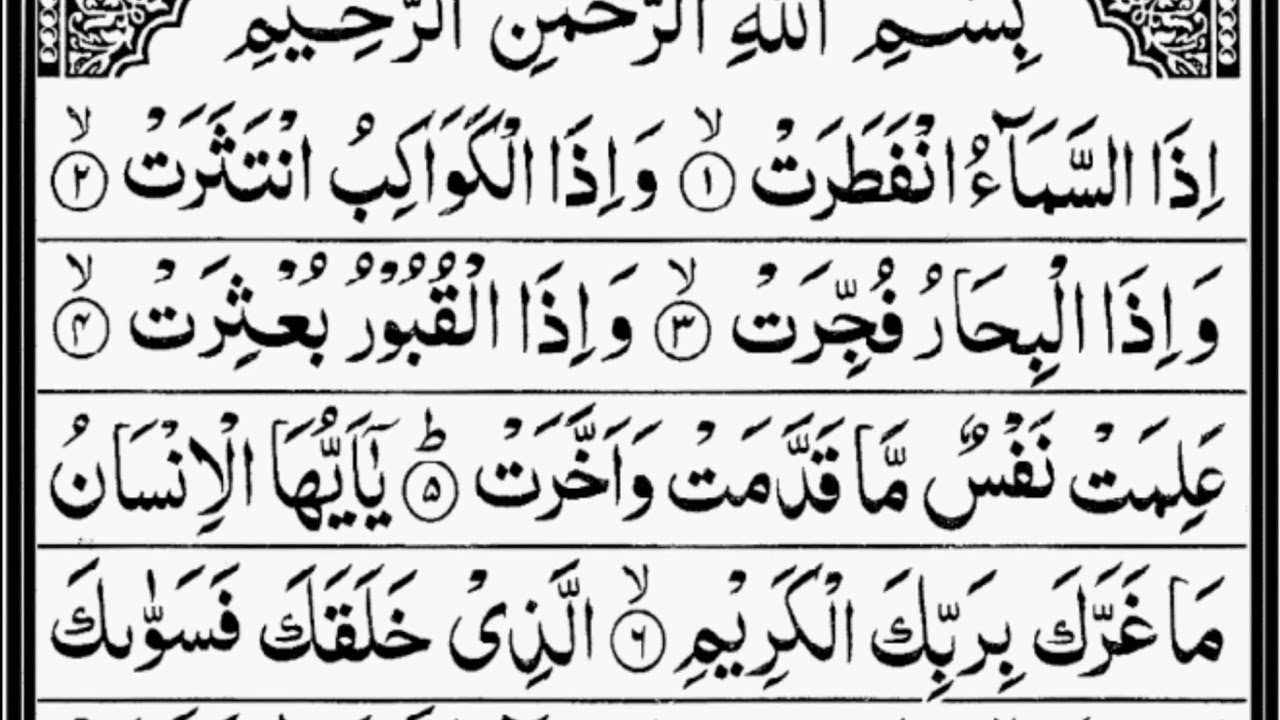 بِسْمِ اللّٰهِ الرَّحْمٰنِ الرَّحِيْمِ
اِذَا السَّمَآءُ انْفَطَرَتْ ۙ﴿۱﴾ وَاِذَا الْكَوَاكِبُ انْتَثَرَتْ ۙ﴿۲﴾
وَاِذَا الْبِحَارُ فُجِّرَتْ ۙ﴿۳﴾ وَاِذَا الْقُبُوْرُ بُعْثِرَتْ ۙ﴿۴﴾
عَلِمَتْ نَفْسٌ مَّا قَدَّمَتْ وَاَخَّرَتْ ؕ﴿۵﴾ يٰۤاَيُّهَا الْاِنْسَانُ
مَا غَرَّكَ بِرَبِّكَ الْكَرِيْمِ ۙ﴿۶﴾ الَّذِىْ خَلَقَكَ فَسَوّٰىكَ